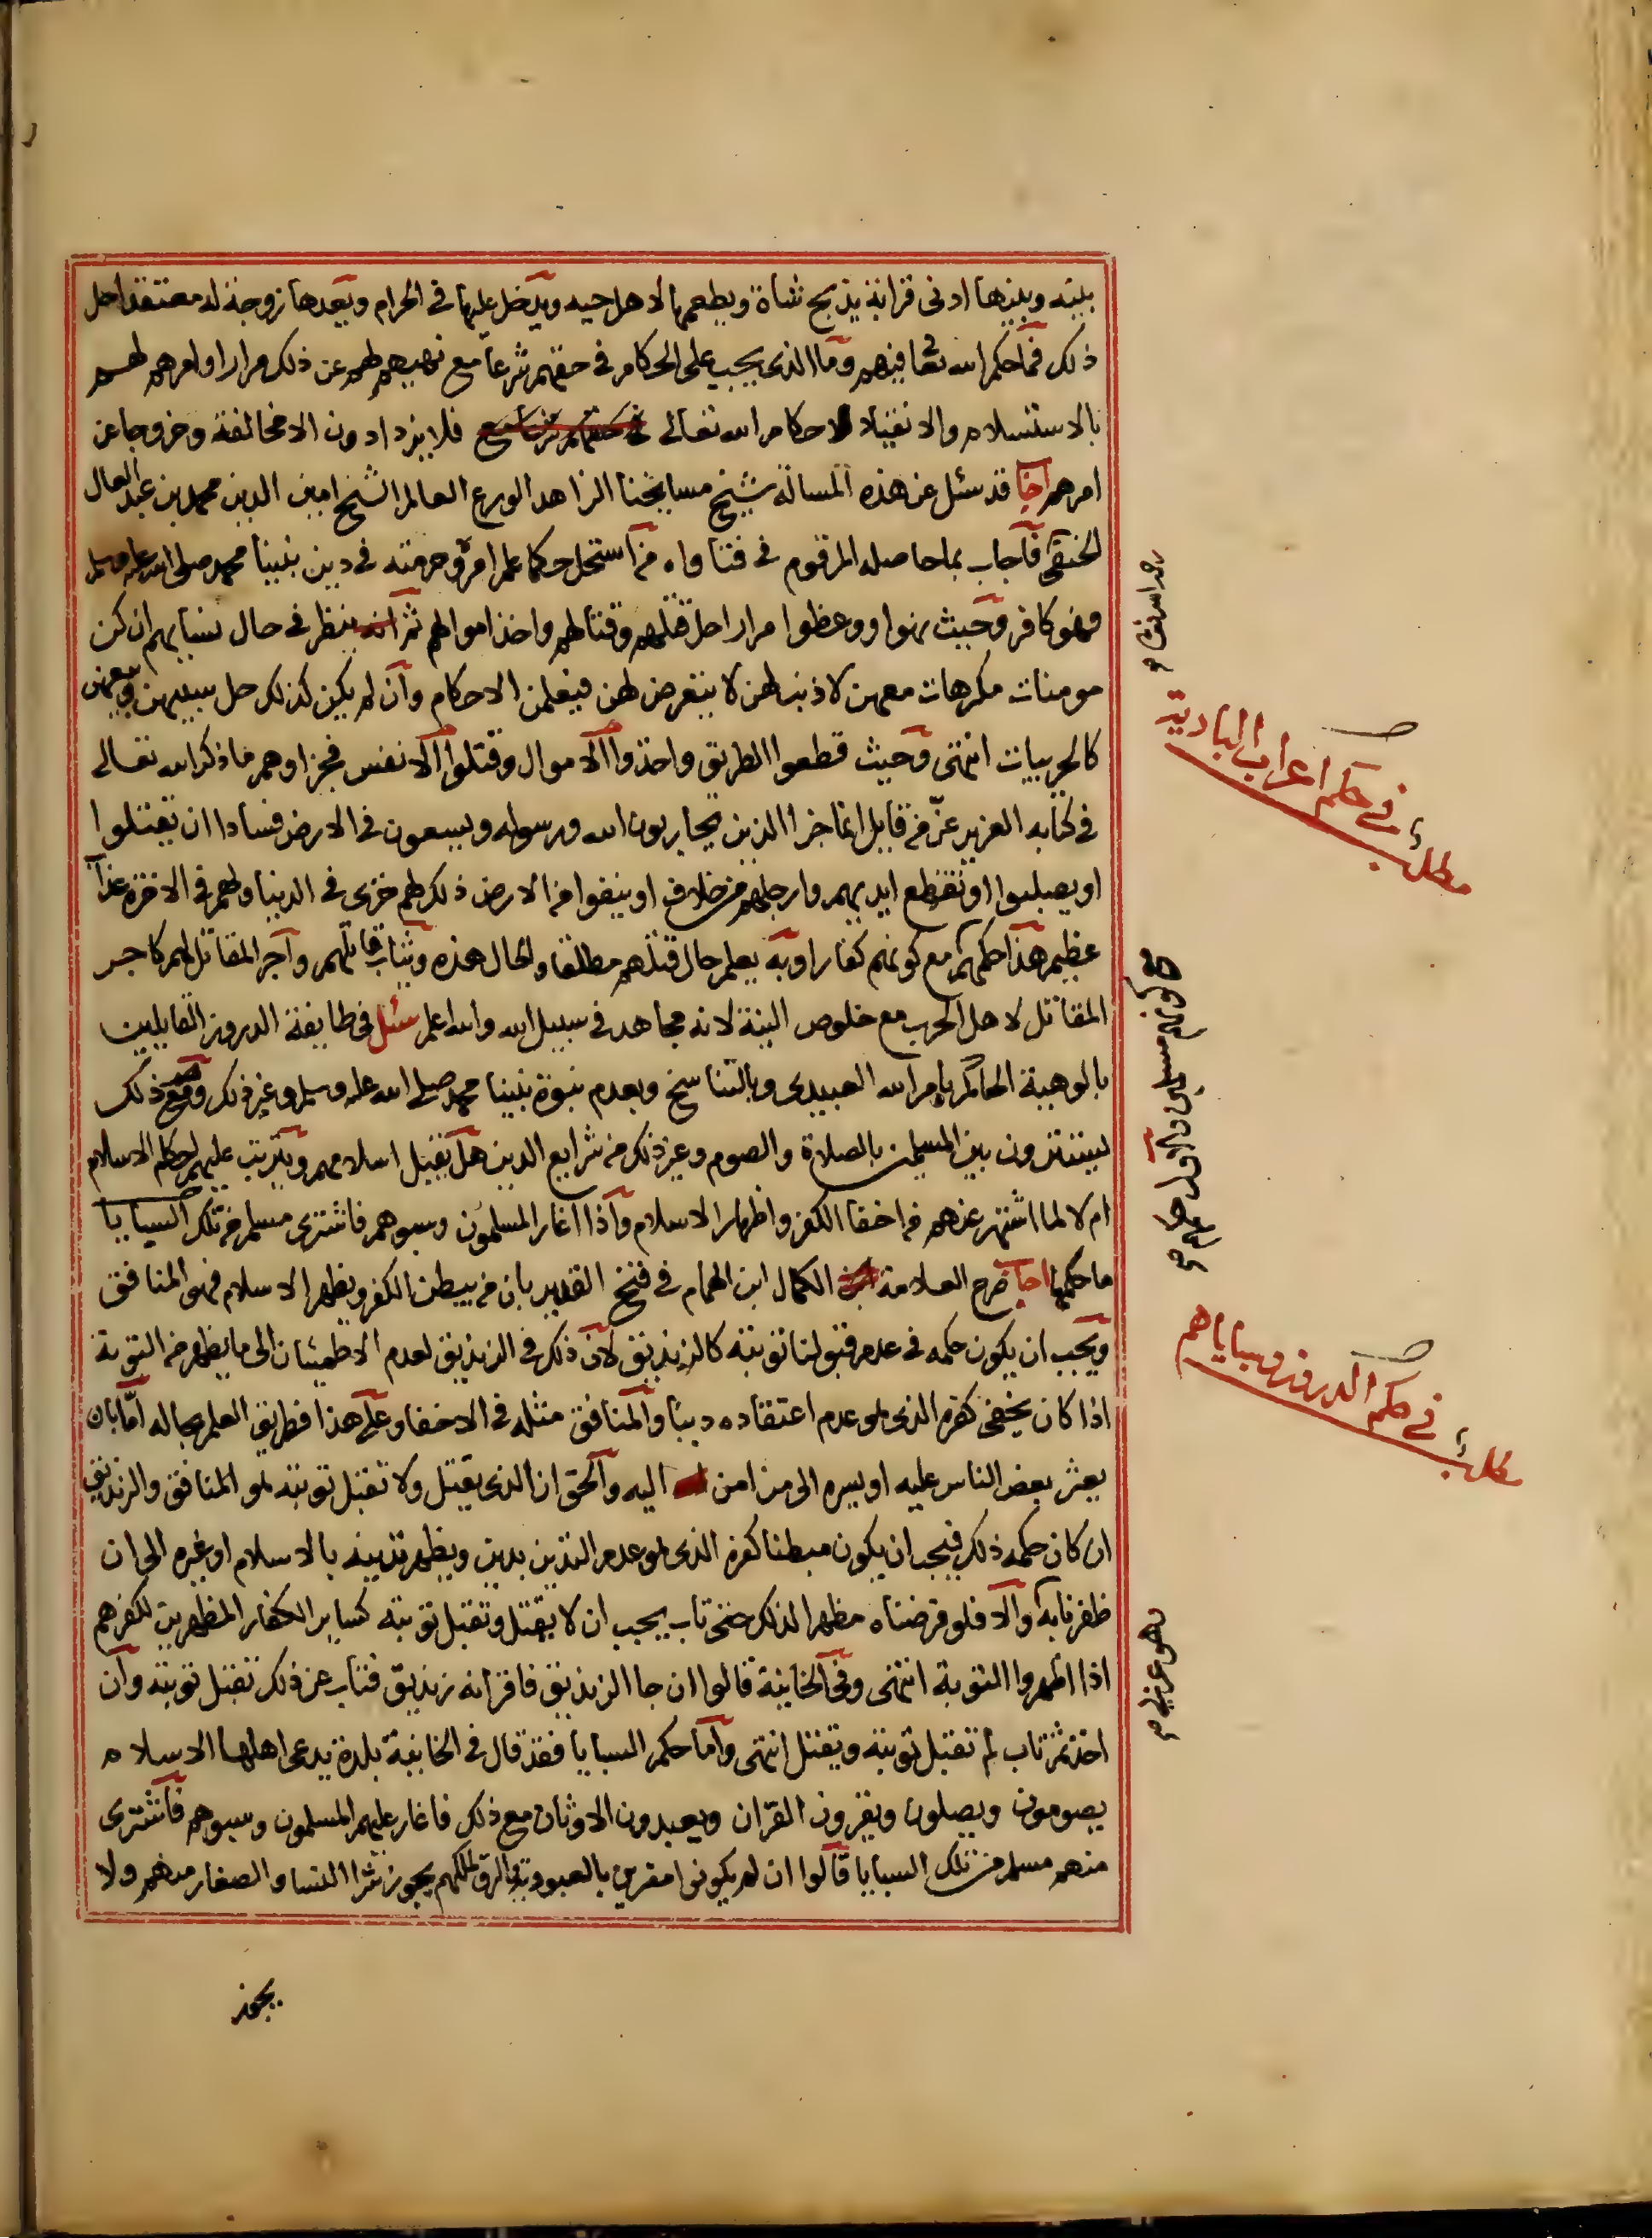 بينه وبينها ادنى قرابة يذبح شاة ويطعمها لاهل حيه ويدخل عليها في الحرام ويعدها زوجة له معتقدا حل
ذلك فما حكم الله تعا فيهم وما الذي يجب على الحكام في حقهم شرعا مع نهيهم لهم عن ذلك مرارا وامرهم لهم
بالاستسلام والانقياد لاحكام الله تعالى فلا يزدادون الا مخالفة وخروجا عن
امرهم اجاب قد سئل عن هذه المسالة شيخ مشايخنا الزاهد الورع العالم الشيخ امين الدين محمد بن عبد العال
الحنفي فاجاب بما حاصله المرقوم في فتاواه من استحل حكما علم امره وحرمته في دين نبينا محمد صلى الله عليه وسلم
فهو كافر وحيث نهوا ووعظوا مرارا حل قتلهم وقتالهم واخذ اموالهم ثم ينظر في حال نسايهم ان كن
مومنات مكرهات معهن لا ذنب لهن لا يتعرض لهن فيعلمن الاحكام وان لم يكن كذلك حل سبيهن وبيعهن
كالحربيات انتهى وحيث قطعوا الطريق واخذوا الاموال وقتلوا الانفس فجزاوهم ما ذكر الله تعالى
في كتابه العزيز عز من قايل انما جزا الذين يحاربون الله ورسوله ويسعون في الارض فسادا ان يقتلوا
او يصلبوا او تقطع ايديهم وارجلهم من خلاف او ينفوا من الارض ذلك لهم خزى في الدنيا ولهم في الاخرة عذاب
عظيم هذا حكمهم مع كونهم كفارا وبه يعلم حال قتلهم مطلقا والحال هذه ويثاب قاتلهم واجر المقاتل لهم كاجر
المقاتل لاهل الحرب مع خلوص النية لانه مجاهد في سبيل الله والله اعلم سئل في طايفة الدروز القايلين
بالوهية الحاكم بامر الله العبيدي وبالتناسخ وبعدم نبوة نبينا محمد صلى الله عليه وسلم وغير ذلك ومع ذلك
يستترون بين المسلمين بالصلاة والصوم وغير ذلك من شرايع الدين هل يقبل اسلامهم ويترتب عليهم احكام الاسلام
ام لا لما اشتهر عنهم من اخفا الكفر واظهار الاسلام واذا اغار المسلمون وسبوهم فاشترى مسلم من تلك السبايا
ما حكمها اجاب صرح العلامة الكمال ابن الهمام في فتح القدير بان من يبطن الكفر ويظهر الاسلام فهو المنافق
ويجب ان يكون حكمه في عدم قبولنا توبته كالزنديق لان ذلك في الزنديق لعدم الاطمئنان الى ما يظهر من التوبة
اذا كان يخفى كفره الذي هو عدم اعتقاده دينا والمنافق مثله في الاخفا وعلى هذا فطريق العلم بحاله اما بان
يعثر بعض الناس عليه او يسره الى من امن اليه والحق ان الذي يقتل ولا تقبل توبته هو المنافق والزنديق
ان كان حكمه ذلك فيجب ان يكون مبطنا كفره الذي هو عدم التدين بدين ويظهر تدينه بالاسلام او غيره الى ان
ظفرنا به والا فلو فرضناه مظهرا لذلك حتى تاب يجب ان لا يقتل وتقبل توبته كساير الكفار المظهرين لكفرهم
اذا اظهروا التوبة انتهى وفي الخانية قالوا ان جا الزنديق فاقر انه زنديق فتاب عن ذلك تقبل توبته وان
اخذ ثم تاب لم تقبل توبته ويقتل انتهى واما حكم السبايا فقد قال في الخانية بلدة يدعى اهلها الاسلام
يصومون ويصلون ويقرون القران ويعبدون الاوثان مع ذلك فاغار عليهم المسلمون وسبوهم فاشترى
منهم مسلم من تلك السبايا قالوا ان لم يكونوا مقرين بالعبودية والرق لملكهم يجوز شرا النسا والصغار منهم ولا
يجوز
مطلب في حكم اعراب البادية
مطلب في حكم الدروز وسباياهم